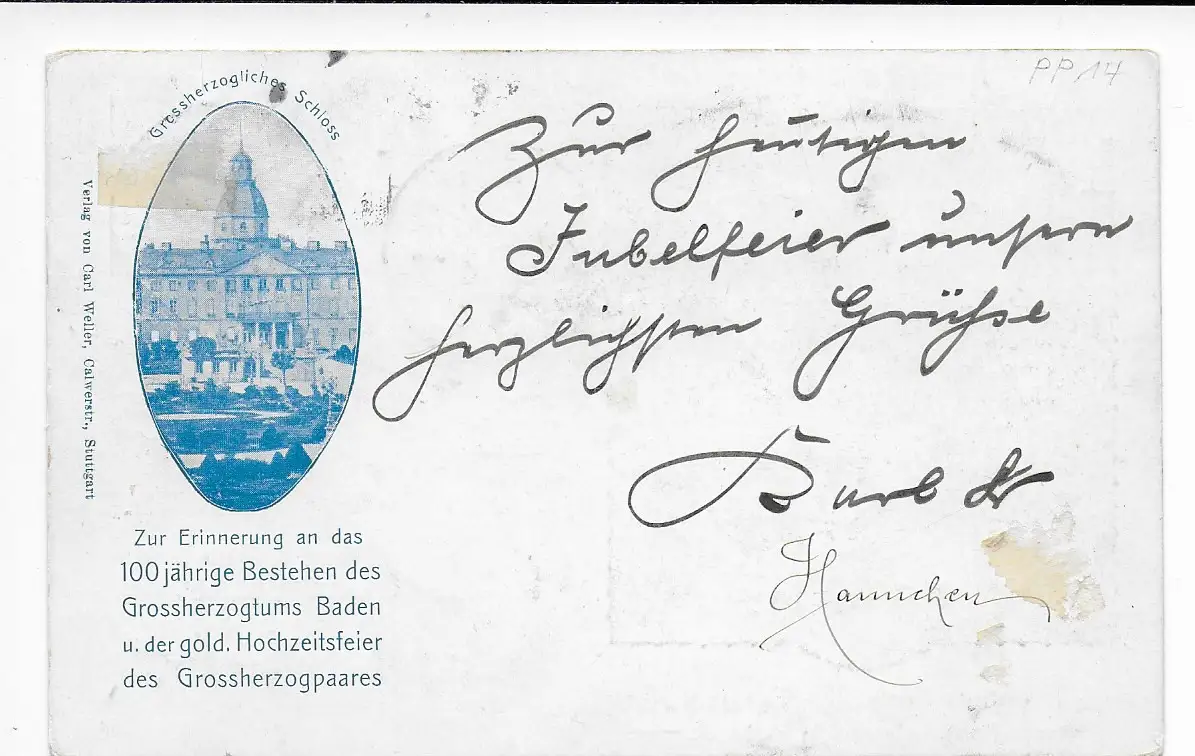 PP 14
Grossherzogliches Schloss
Verlag von Carl Weller, Calwerstr., Stuttgart
Zur heutigen
Jubelfeier unsern
herzlichsten Grüße
Karl &
Hannchen
Zur Erinnerung an das
100 jährige Bestehen des
Grossherzogtums Baden
u. der gold. Hochzeitsfeier
des Grossherzogpaares